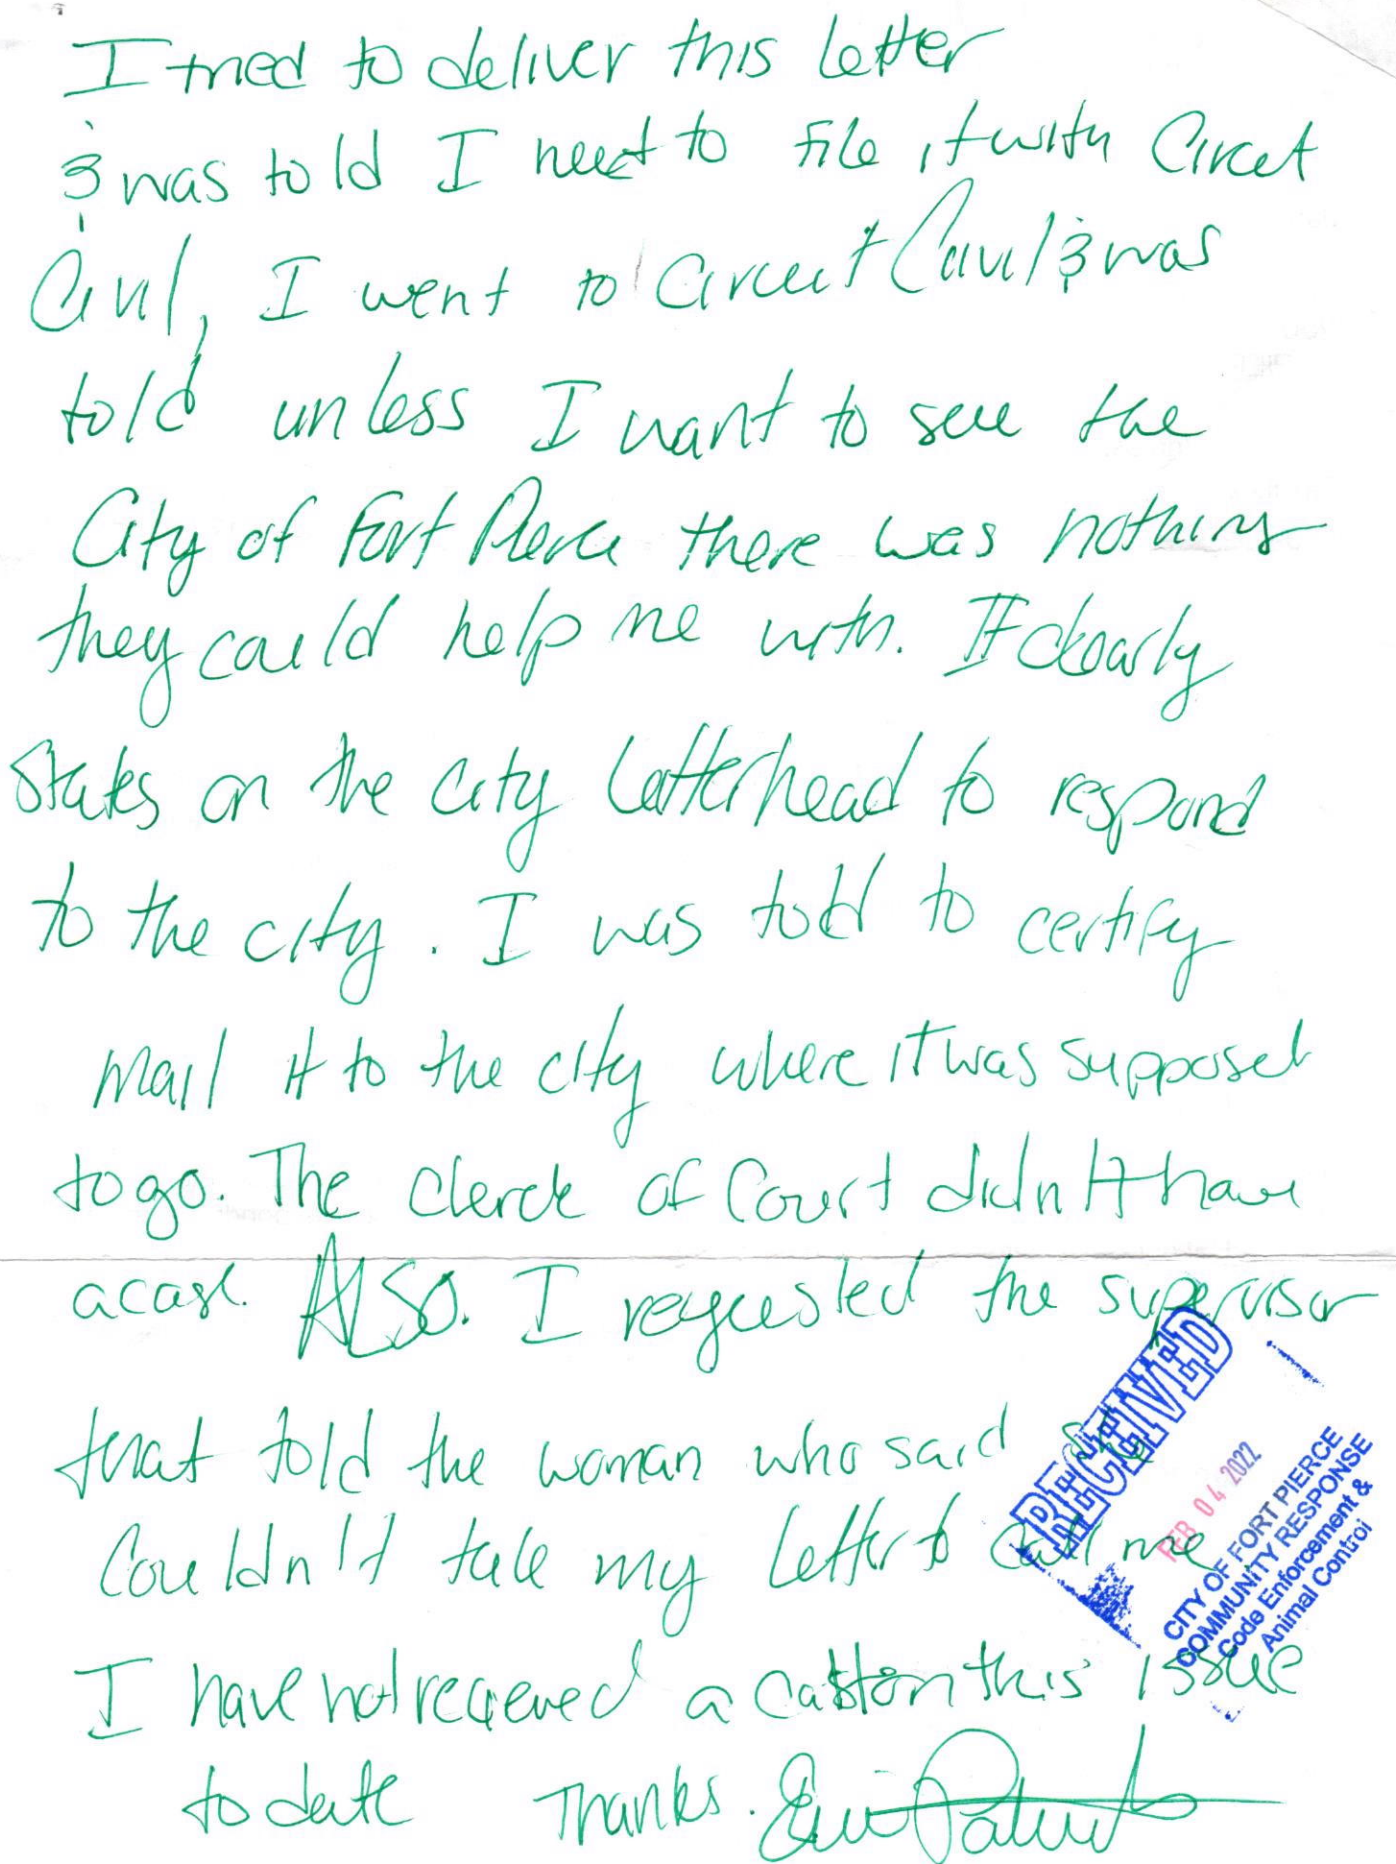 I tried to deliver this letter
& was told I need to file it with Circut
Civil, I went to Circuit Civil & was
told unless I want to sue the
City of Fort Pierce there was nothing
they could help me with. It clearly
States on the city letterhead to respond
to the city. I was told to certify
mail it to the city where it was supposed
to go. The Clerck of Court didn't have
a case. ALSO. I requested the supervisor
that told the woman who said she
couldn't take my letter to call me
I have not recieved a call on this issue
to date Thanks.
RECEIVED
FEB 04 2022
CITY OF FORT PIERCE
COMMUNITY RESPONSE
Code Enforcement &
Animal Control